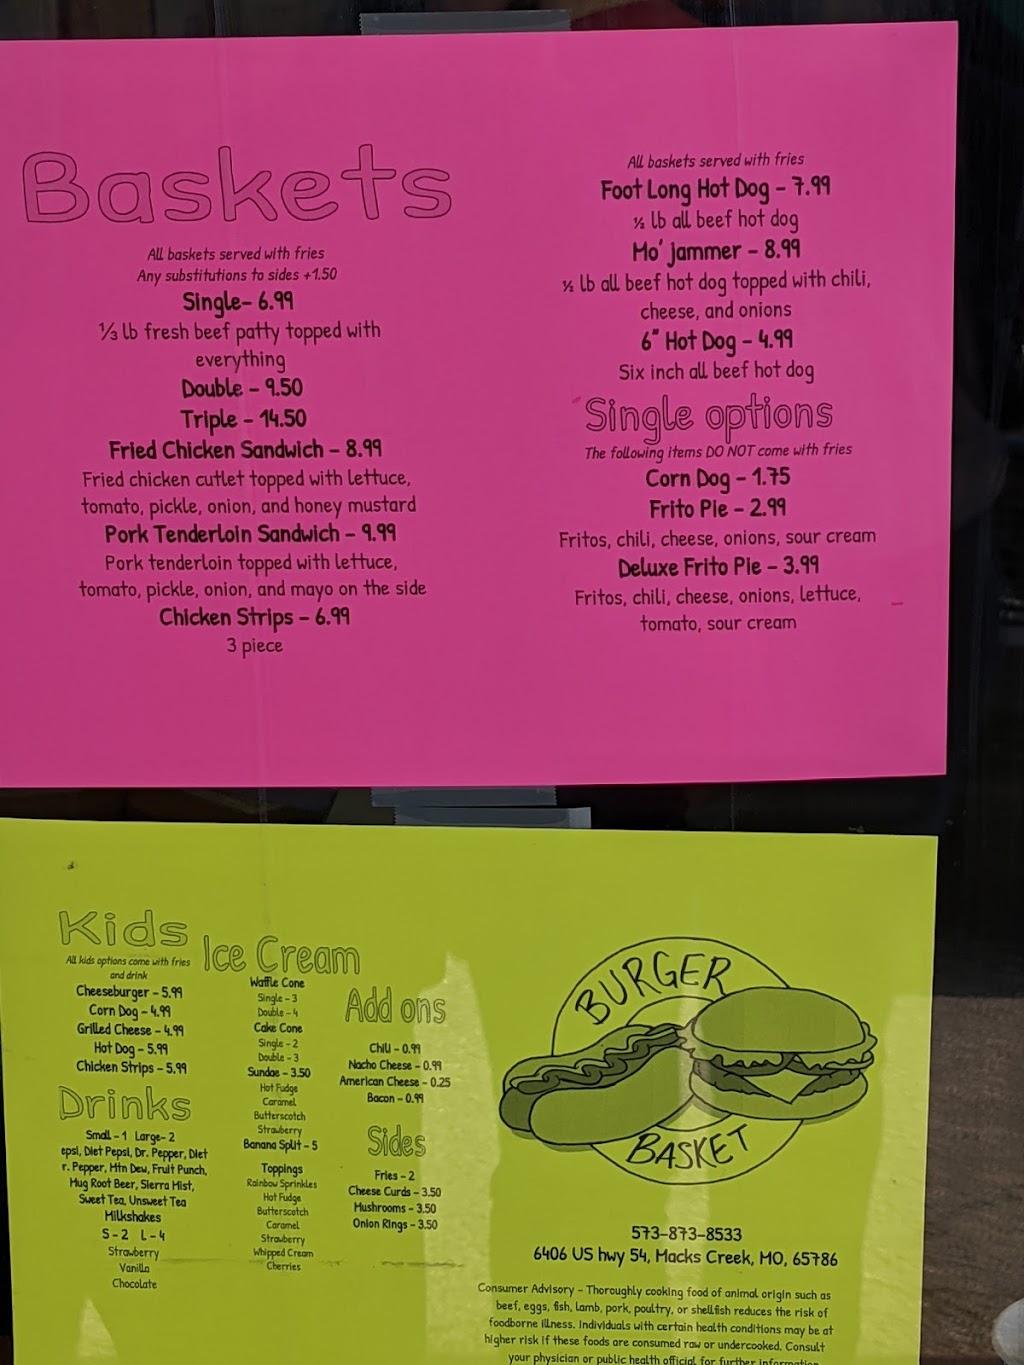 Baskets
All baskets served with fries
Any substitutions to sides +1.50
Single- 6.99
⅓ lb fresh beef patty topped with
everything
Double - 9.50
Triple - 14.50
Fried Chicken Sandwich - 8.99
Fried chicken cutlet topped with lettuce,
tomato, pickle, onion, and honey mustard
Pork Tenderloin Sandwich - 9.99
Pork tenderloin topped with lettuce,
tomato, pickle, onion, and mayo on the side
Chicken Strips - 6.99
3 piece
All baskets served with fries
Foot Long Hot Dog - 7.99
½ lb all beef hot dog
Mo' Jammer - 8.99
½ lb all beef hot dog topped with chili,
cheese, and onions
6" Hot Dog - 4.99
Six inch all beef hot dog
Single options
The following items DO NOT come with fries
Corn Dog - 1.75
Frito Pie - 2.99
Fritos, chili, cheese, onions, sour cream
Deluxe Frito Pie - 3.99
Fritos, chili, cheese, onions, lettuce,
tomato, sour cream
Kids
All kids options come with fries
and drink
Cheeseburger - 5.99
Corn Dog - 4.99
Grilled Cheese - 4.99
Hot Dog - 5.99
Chicken Strips - 5.99
Drinks
Small - 1 Large- 2
epsi, Diet Pepsi, Dr. Pepper, Diet
r. Pepper, Mtn Dew, Fruit Punch,
Mug Root Beer, Sierra Mist,
Sweet Tea, Unsweet Tea
Milkshakes
S - 2 L - 4
Strawberry
Vanilla
Chocolate
Ice Cream
Waffle Cone
Single - 3
Double - 4
Cake Cone
Single - 2
Double - 3
Sundae - 3.50
Hot Fudge
Caramel
Butterscotch
Strawberry
Banana Split - 5
Toppings
Rainbow Sprinkles
Hot Fudge
Butterscotch
Caramel
Strawberry
Whipped Cream
Cherries
Add ons
Chili - 0.99
Nacho Cheese - 0.99
American Cheese - 0.25
Bacon - 0.99
Sides
Fries - 2
Cheese Curds - 3.50
Mushrooms - 3.50
Onion Rings - 3.50
BURGER
BASKET
573-873-8533
6406 US hwy 54, Macks Creek, MO, 65786
Consumer Advisory - Thoroughly cooking food of animal origin such as
beef, eggs, fish, lamb, pork, poultry, or shellfish reduces the risk of
foodborne illness. Individuals with certain health conditions may be at
higher risk if these foods are consumed raw or undercooked. Consult
your physician or public health official for further information